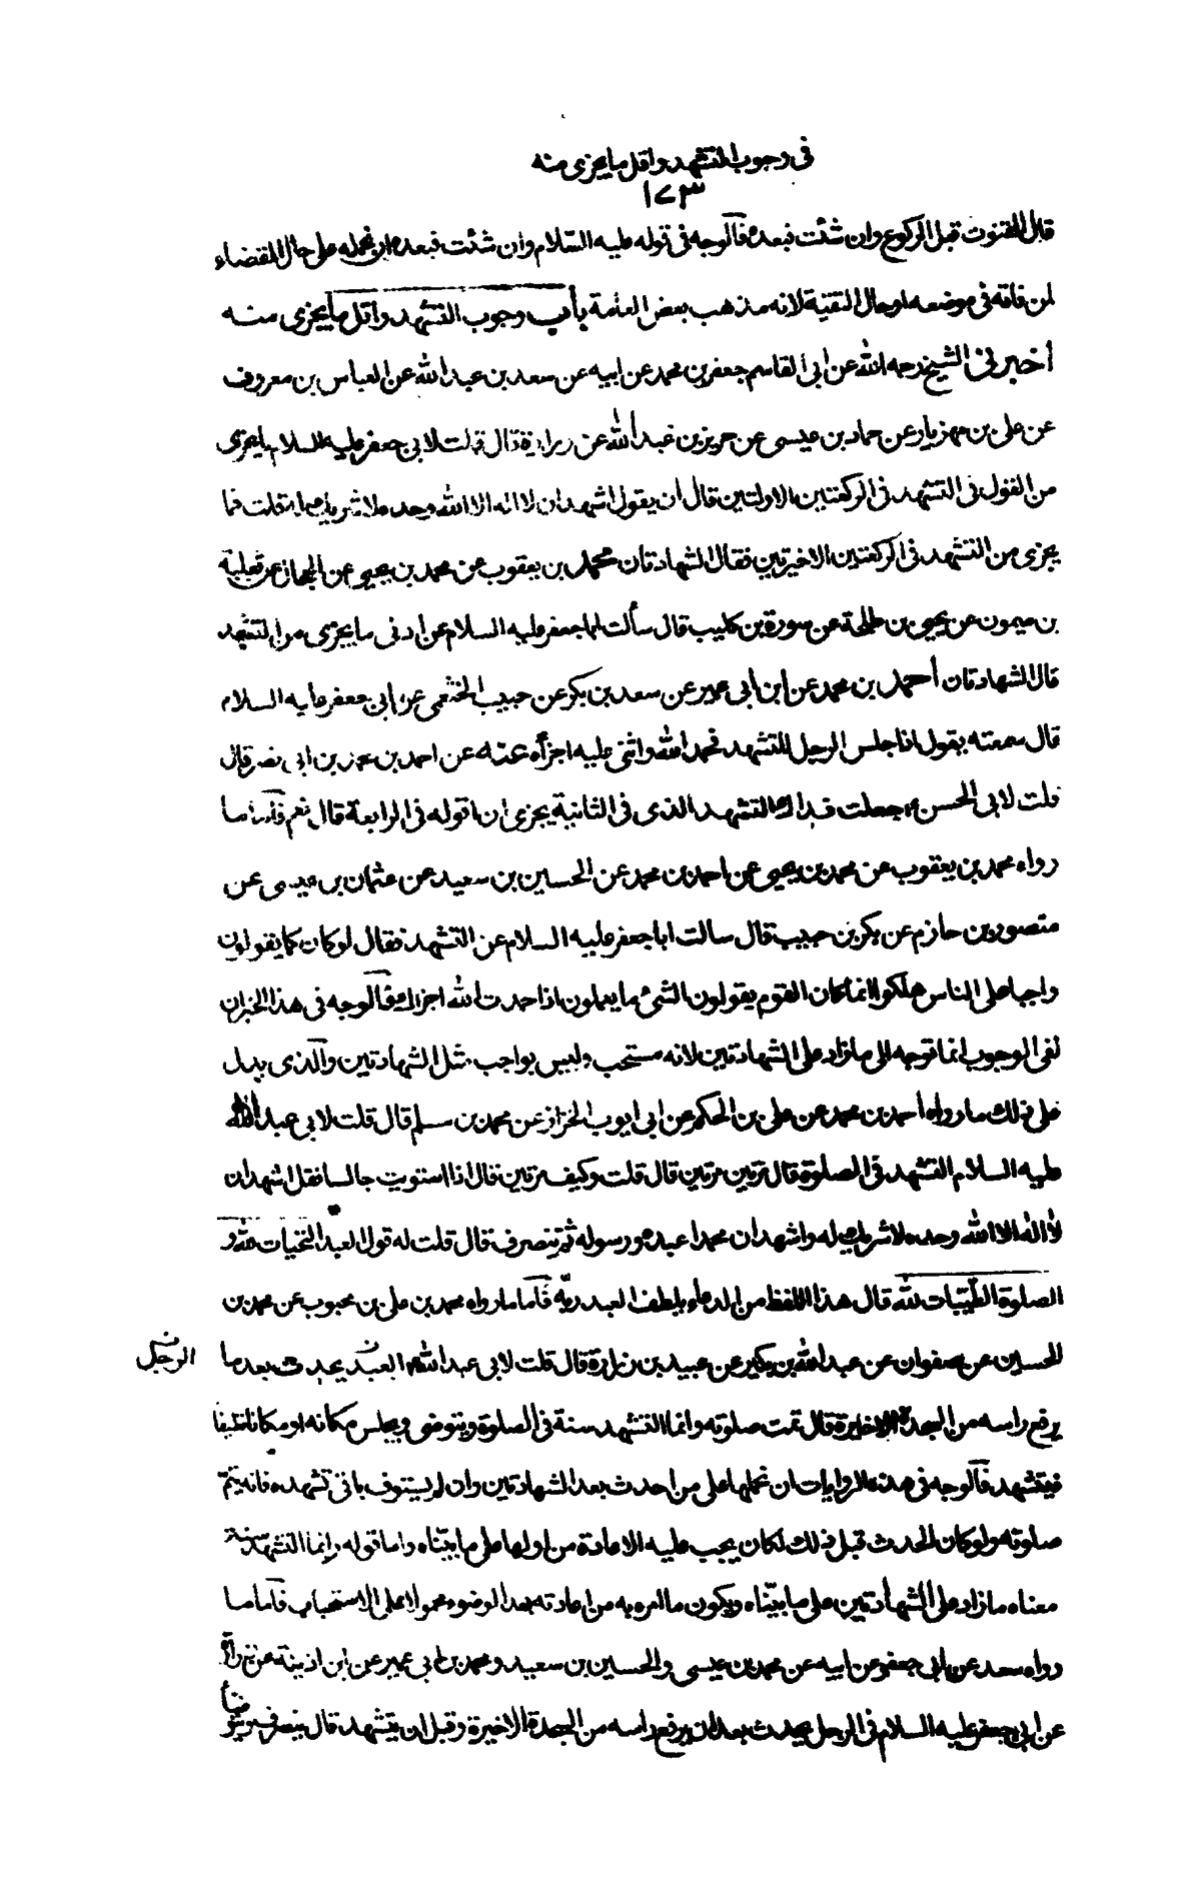 في وجوب التشهد واقل ما يجزى منه
١٧٣
قال القنوت قبل الركوع وان شئت فبعده فآلوجه في قوله عليه السّلام وان شئت فبعده ان نحمله على حال القضاء
لمن فاته في موضعه او حال التقيّة لانه مذهب بعض العامّة باب وجوب التشهد واقل ما يجزى منه
أخبرنى الشيخ رحمه الله عن ابى القاسم جعفر بن محمد عن ابيه عن سعد بن عبد الله عن العباس بن معروف
عن على بن مهزيار عن حماد بن عيسى عن حريز بن عبد الله عن زرارة قال قلت لابى جعفر عليه السلام ما يجزى
من القول في التشهد في الركعتين الاولتين قال ان يقول اشهد ان لا اله الا الله وحده لا شريك له قلت فما
يجزى من التشهد في الركعتين الاخيرتين فقال الشهادتان محمد بن يعقوب عن محمد بن يحيى عن الحجال عن ثعلبة
بن ميمون عن يحيى بن طلحة عن سورة بن كليب قال سألت ابا جعفر عليه السلام عن ادنى ما يجزى من التشهد
قال الشهادتان أحمد بن محمد عن ابن ابى عمير عن سعد بن بكر عن حبيب الخثعمى عن ابى جعفر عليه السلام
قال سمعته يقول اذا جلس الرجل للتشهد فحمد الله واثنى عليه اجزأه عنه عن احمد بن محمد بن ابى نصر قال
قلت لابى الحسن ع جعلت فداك التشهد الذى في الثانية يجزى ان اقوله في الرابعة قال نعم فآما ما
رواه محمد بن يعقوب عن محمد بن يحيى عن احمد بن محمد عن الحسين بن سعيد عن عثمان بن عيسى عن
منصور بن حازم عن بكر بن حبيب قال سالت ابا جعفر عليه السلام عن التشهد فقال لو كان كما يقولون
واجبا على الناس هلكوا انما كان القوم يقولون الشئ ما يعلمون اذا حمدت الله اجزاك فآلوجه في هذا الخبر ان
نفى الوجوب انما توجه الى ما زاد على الشهادتين لانه مستحب وليس بواجب مثل الشهادتين وآلذى يدل
على ذلك ما رواه أحمد بن محمد عن على بن الحكم عن ابى ايوب الخزاز عن محمد بن مسلم قال قلت لابى عبد الله
عليه السلام التشهد في الصلوة قال مرتين مرتين قال قلت وكيف مرتين قال اذا استويت جالسا فقل اشهد ان
لا اله الا الله وحده لا شريك له واشهد ان محمدا عبده ورسوله ثم تنصرف قال قلت له قول العبد التحيات لله و
الصلوة الطيّبات لله قال هذا اللفظ من الدعاء يلطف العبد ربّه فآما ما رواه محمد بن على بن محبوب عن محمد بن
الحسين عن صفوان عن عبد الله بن بكير عن عبيد بن زرارة قال قلت لابى عبد الله ع العبد يحدث بعد ما
الرجل ن
يرفع راسه من السجدة الاخيرة قال تمت صلوته وانما التشهد سنة في الصلوة ويتوضى ويجلس مكانه او مكانا نظيفا
فيتشهد فآلوجه في هذه الروايات ان نحملها على من احدث بعد الشهادتين وان لم يستوف باقى تشهده فانه يتم
صلوته ولو كان الحدث قبل ذلك لكان يجب عليه الاعادة من اولها على ما بيّناه واما قوله وانما التشهد سنة
معناه ما زاد على الشهادتين على ما بيّناه ويكون ما امره به من اعادته بعد الوضوء محمولا على الاستحباب فآما ما
رواه سعد عن ابى جعفر عن ابيه عن محمد بن عيسى والحسين بن سعيد ومحمد بن ابى عمير عن ابن اذينة عن زرارة
عن ابى جعفر عليه السلام في الرجل يحدث بعد ان يرفع راسه من السجدة الاخيرة وقبل ان يتشهد قال ينصرف ويتوضأ